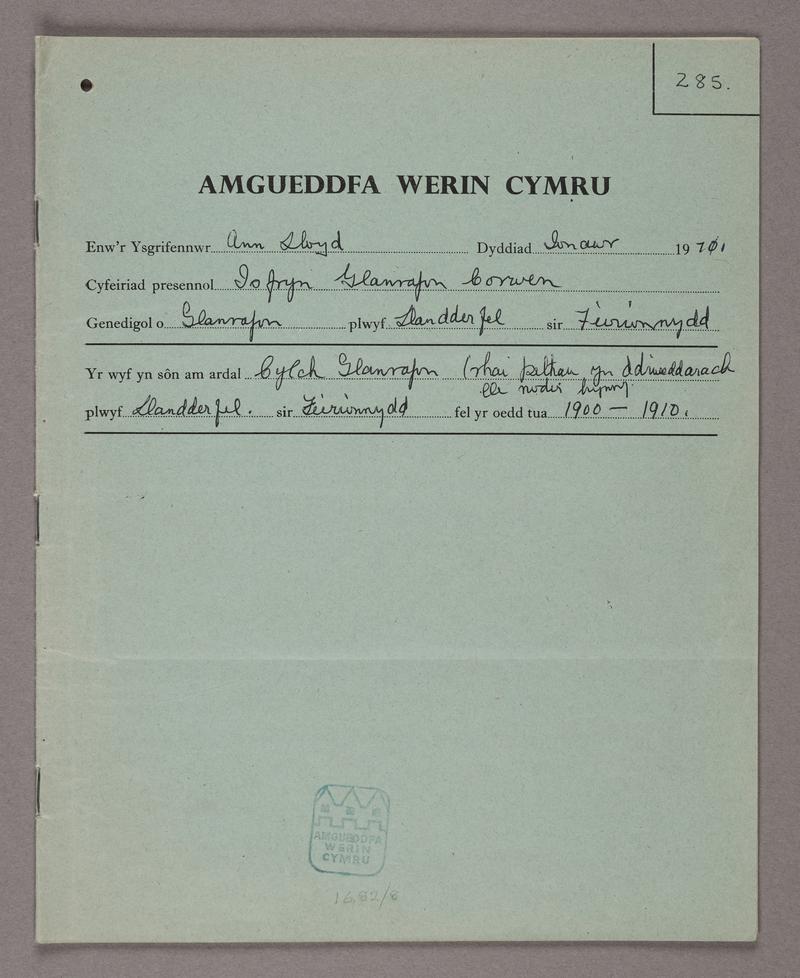 285.
AMGUEDDFA WERIN CYMRU
Enw'r Ysgrifennwr Ann Lloyd Dyddiad Ionawr 1970
Cyfeiriad presennol Is fryn Glanrafon Corwen
Genedigol o Glanrafon plwyf Llandderfel sir Feirionnydd
Yr wyf yn sôn am ardal Cylch Glanrafon (rhai pethau yn ddiweddarach
lle nodir hynny
plwyf Llandderfel. sir Feirionnydd fel yr oedd tua 1900 — 1910.
AMGUEDDFA
WERIN
CYMRU
1682/8